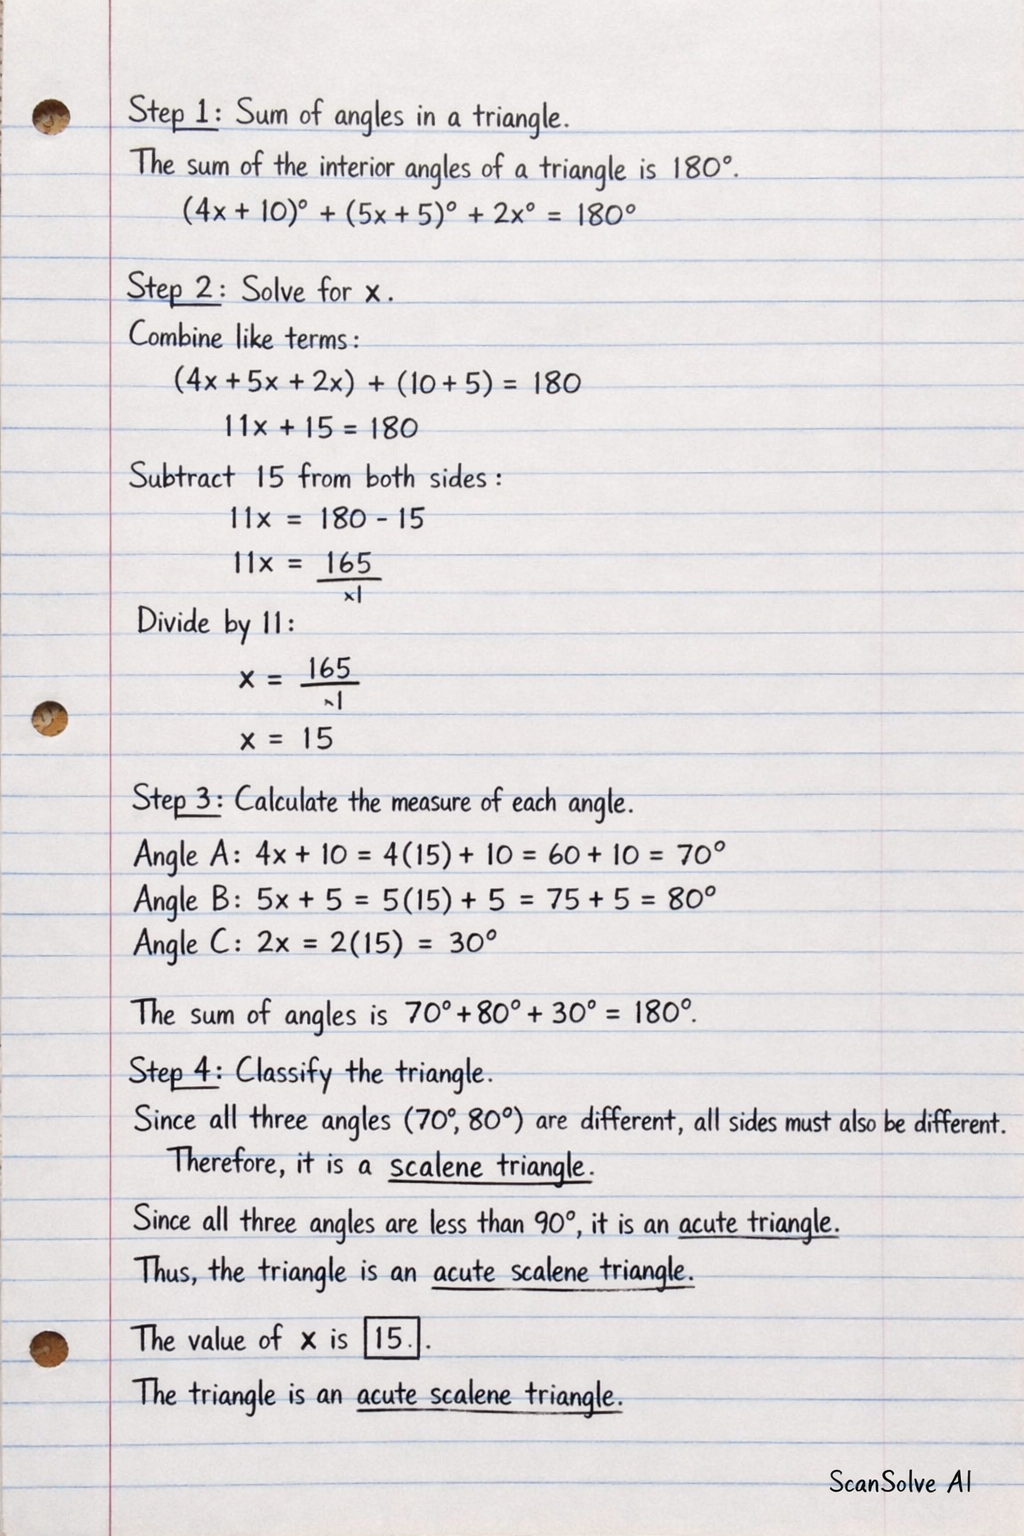 Step 1: Sum of angles in a triangle.
The sum of the interior angles of a triangle is 180°.
(4x + 10)° + (5x + 5)° + 2x° = 180°
Step 2: Solve for x.
Combine like terms:
(4x + 5x + 2x) + (10 + 5) = 180
11x + 15 = 180
Subtract 15 from both sides:
11x = 180 - 15
11x = 165
x1
Divide by 11:
x = 165
x1
x = 15
Step 3: Calculate the measure of each angle.
Angle A: 4x + 10 = 4(15) + 10 = 60 + 10 = 70°
Angle B: 5x + 5 = 5(15) + 5 = 75 + 5 = 80°
Angle C: 2x = 2(15) = 30°
The sum of angles is 70° + 80° + 30° = 180°.
Step 4: Classify the triangle.
Since all three angles (70°, 80°) are different, all sides must also be different.
Therefore, it is a scalene triangle.
Since all three angles are less than 90°, it is an acute triangle.
Thus, the triangle is an acute scalene triangle.
The value of x is 15. .
The triangle is an acute scalene triangle.
ScanSolve AI